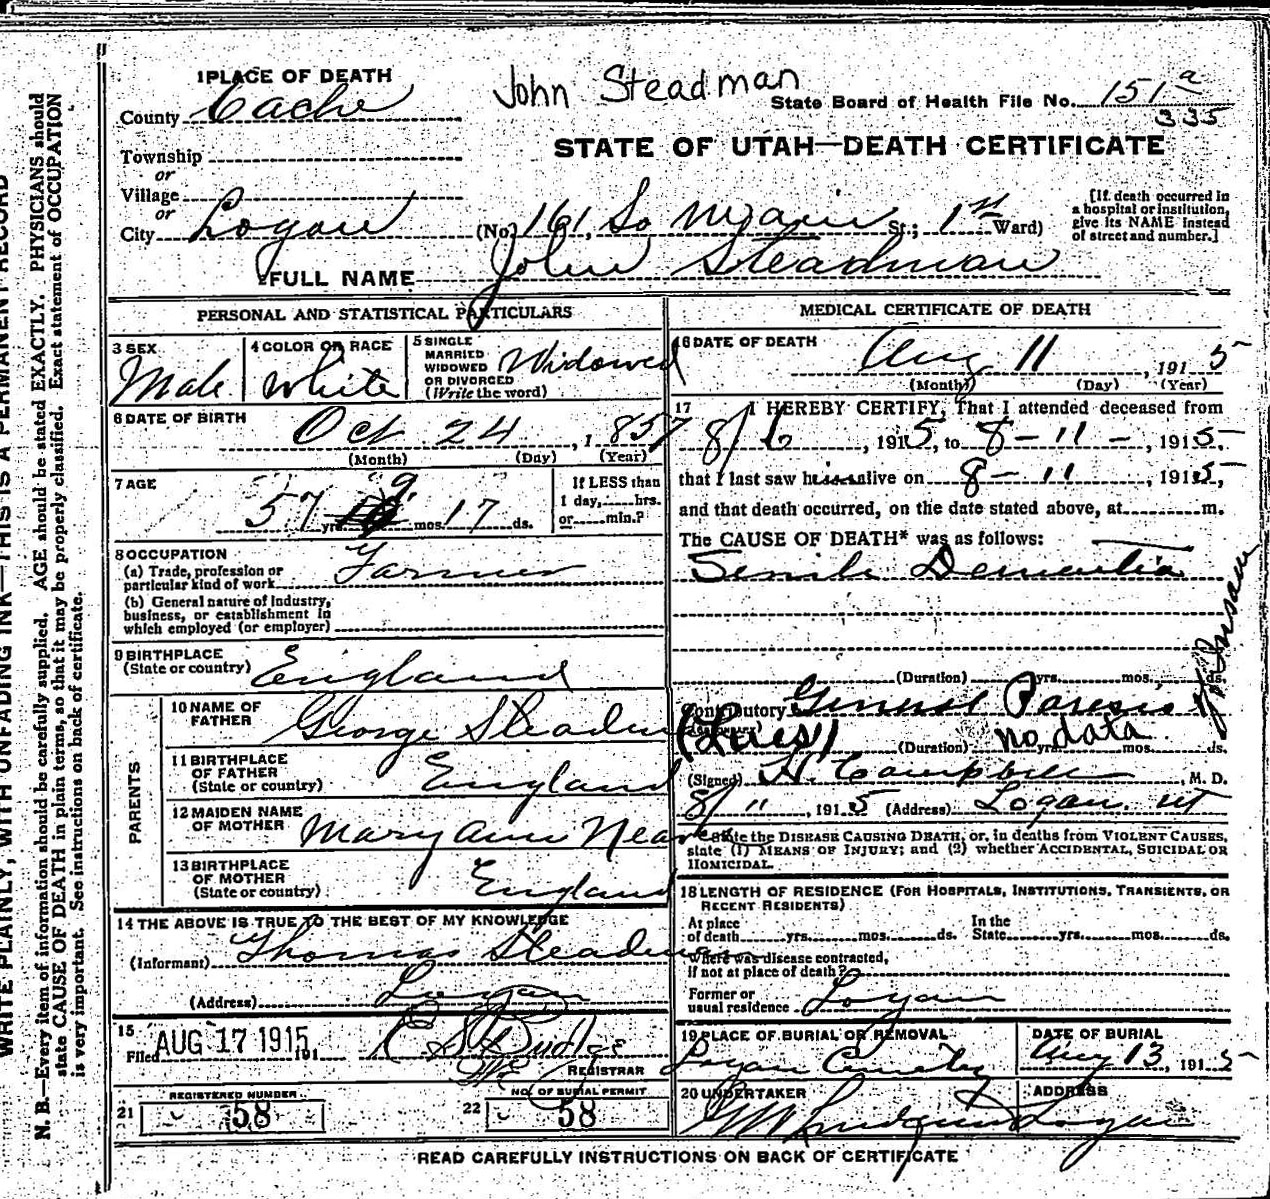 WRITE PLAINLY, WITH UNFADING INK—THIS IS A PERMANENT RECORD
N. B.—Every item of information should be carefully supplied. AGE should be stated EXACTLY. PHYSICIANS should
state CAUSE OF DEATH in plain terms, so that it may be properly classified. Exact statement of OCCUPATION
is very important. See instructions on back of certificate.
1 PLACE OF DEATH
John Steadman
County Cache
State Board of Health File No. 151 a
335
STATE OF UTAH—DEATH CERTIFICATE
Township
or
Village
or
City Logan (No. 161, So Main St.; 1st Ward)
[If death occurred in
a hospital or institution,
give its NAME instead
of street and number.]
FULL NAME John Steadman
PERSONAL AND STATISTICAL PARTICULARS
3 SEX
Male
4 COLOR OR RACE
White
5 SINGLE
MARRIED
WIDOWED
OR DIVORCED
(Write the word)
Widowed
6 DATE OF BIRTH
Oct 24, 1857
(Month) (Day) (Year)
7 AGE
57 yrs. 9 mos. 17 ds.
If LESS than
1 day, hrs.
or min.?
8 OCCUPATION
(a) Trade, profession or
particular kind of work Farmer
(b) General nature of industry,
business, or establishment in
which employed (or employer)
9 BIRTHPLACE
(State or country) England
PARENTS
10 NAME OF
FATHER George Steadm
11 BIRTHPLACE
OF FATHER
(State or country) England
12 MAIDEN NAME
OF MOTHER Mary Ann Nea
13 BIRTHPLACE
OF MOTHER
(State or country) England
14 THE ABOVE IS TRUE TO THE BEST OF MY KNOWLEDGE
(Informant) Thomas Steadman
(Address) Logan
15
Filed AUG 17 1915, 191
REGISTRAR
REGISTERED NUMBER
21 58
NO. OF BURIAL PERMIT
22 58
MEDICAL CERTIFICATE OF DEATH
16 DATE OF DEATH
Aug 11, 1915
(Month) (Day) (Year)
17 I HEREBY CERTIFY, That I attended deceased from
8/6, 1915, to 8-11-, 1915
that I last saw him alive on 8-11, 1915,
and that death occurred, on the date stated above, at m.
The CAUSE OF DEATH* was as follows:
Senile Dementia
(Duration) yrs. mos. ds.
Contributory General Paresis of Insane
(Lues)
(Duration) yrs. mos. ds.
no data
(Signed) H. Campbell, M. D.
8/11, 1915 (Address) Logan, Ut
*State the DISEASE CAUSING DEATH, or, in deaths from VIOLENT CAUSES,
state (1) MEANS OF INJURY; and (2) whether ACCIDENTAL, SUICIDAL OR
HOMICIDAL.
18 LENGTH OF RESIDENCE (FOR HOSPITALS, INSTITUTIONS, TRANSIENTS, OR
RECENT RESIDENTS)
At place
of death yrs. mos. ds.
In the
State yrs. mos. ds.
Where was disease contracted,
if not at place of death?
Former or
usual residence Logan
19 PLACE OF BURIAL OR REMOVAL
Logan Cemetery
DATE OF BURIAL
Aug 13, 1915
20 UNDERTAKER
ADDRESS
Logan
READ CAREFULLY INSTRUCTIONS ON BACK OF CERTIFICATE